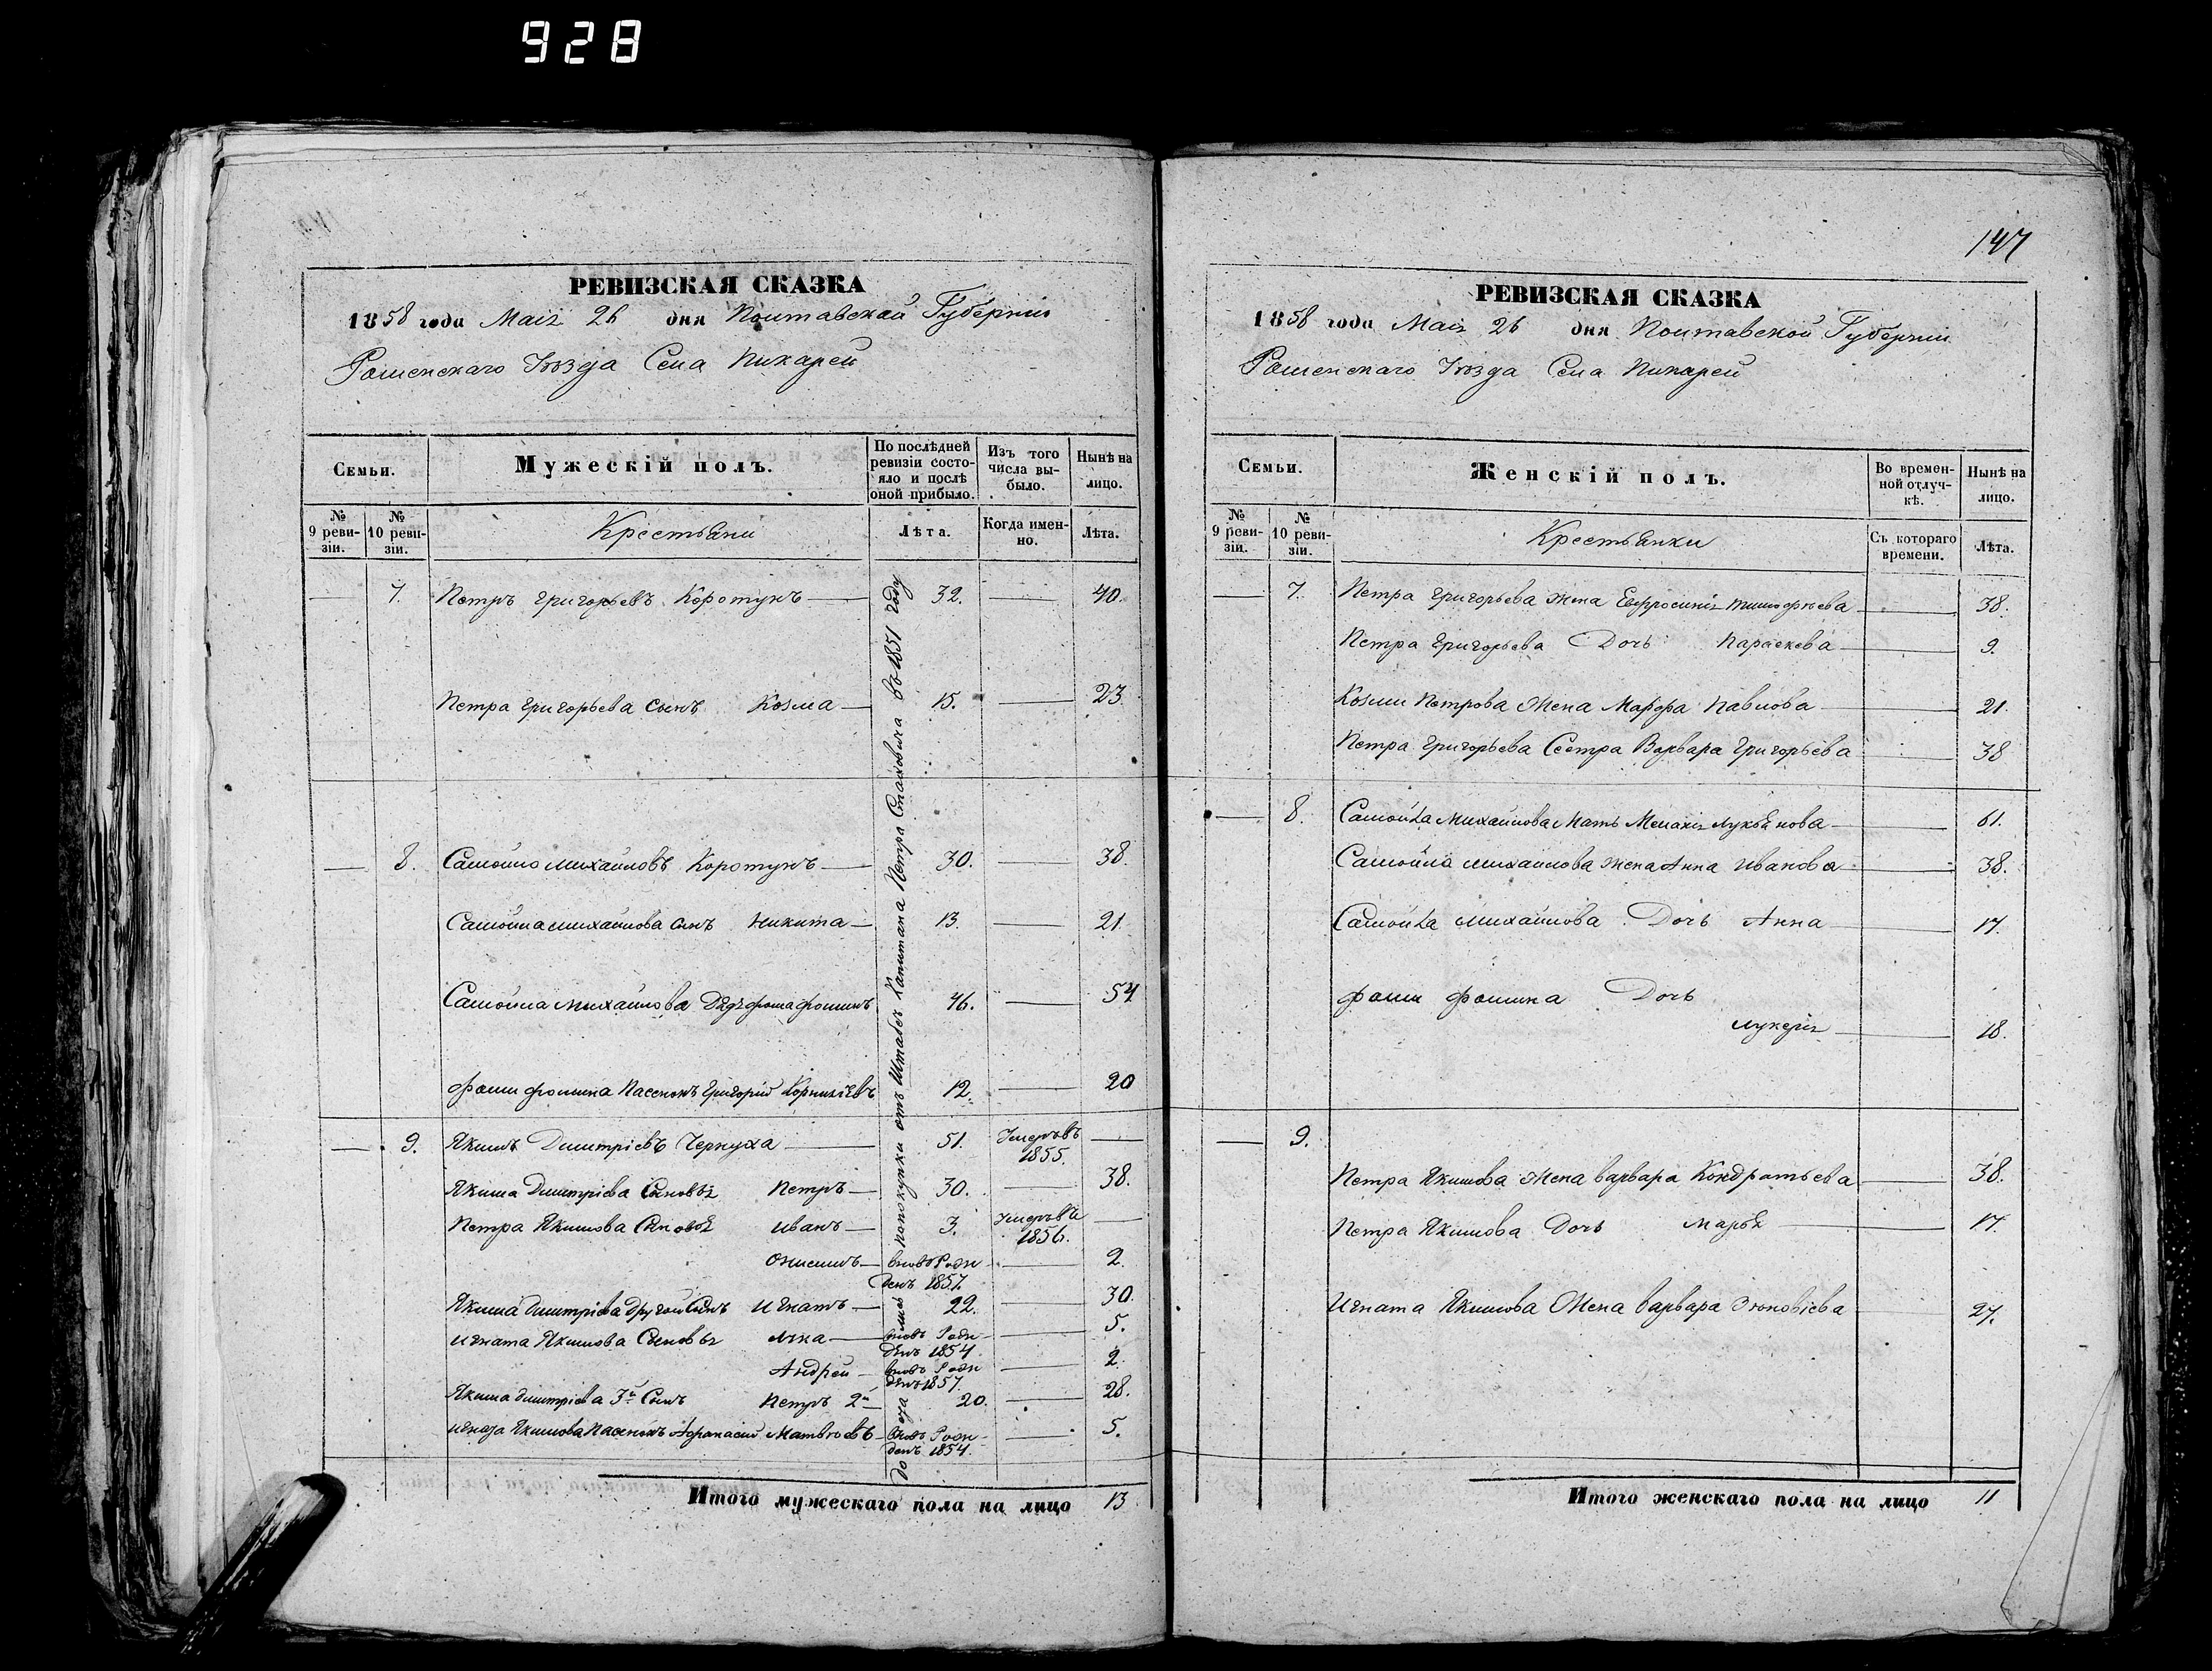 928
РЕВИЗСКАЯ СКАЗКА
1858 года Маія 26 дня Полтавской Губерніи
Роменскаго Уѣзда Села Пикарей
Семьи.
Мужескій полъ.
По послѣдней ревизіи состояло и послѣ оной прибыло.
Изъ того числа выбыло.
Нынѣ на лицо.
№ 9 ревизіи.
№ 10 ревизіи.
Крестьяни
Лѣта.
Когда именно.
Лѣта.
7. Петръ Григорьевъ Коротунъ 32. 40.
Петра Григорьева сынъ Козма 15. 23.
8. Самойло Михайловъ Коротунъ 30. 38.
Самойла Михайлова сынъ Никита 13. 21.
Самойла Михайлова Дядъ Фома Фоминъ 46. 54
Фомы Фомина Пасенокъ Григорій Корниліевъ 12. 20
9. Якимъ Димитріевъ Чернуха 51. Умеръ въ 1855.
Якима Димитріева Сыновья Петръ 30. 38.
Петра Якимова Сыновья Иванъ 3. Умеръ въ 1856.
Онисимъ вновь Рожденъ 1857. 2.
Якима Димитріева другой Сынъ Игнатъ 22. 30.
Игната Якимова Сыновья Лука вновь Рожденъ 1854 5.
Андрей вновь Рожденъ 1857. 2.
Якима Димитріева 3й Сынъ Петръ 2й 20. 28.
Якимова Пасенокъ Афанасій Матвѣевъ вновь Рожденъ 1854. 5.
отъ Штабсъ Капитана Петра Стаховича въ 1851 году
Итого мужескаго пола на лицо 13
147
РЕВИЗСКАЯ СКАЗКА
1858 года Маія 26 дня Полтавской Губерніи
Роменскаго Уѣзда Села Пикарей
Семьи.
Женскій полъ.
Во временной отлучкѣ.
Нынѣ на лицо.
№ 9 ревизіи.
№ 10 ревизіи.
Крестьянки
Съ котораго времени.
Лѣта.
7. Петра Григорьева Жена Евфросинія Тимофѣева 38.
Петра Григорьева Дочь Параскева 9.
Козмы Петрова Жена Марфа Павлова 21.
Петра Григорьева Сестра Варвара Григорьева 38
8. Самойла Михайлова Мать Меланія Лукьянова 61.
Самойла Михайлова Жена Анна Иванова 38.
Самойла Михайлова Дочь Анна 17.
Фомы Фомина Дочь
Лукерія 18.
9.
Петра Якимова Жена Варвара Кондратьева 38.
Петра Якимова Дочь Марья 17.
Игната Якимова Жена Варвара Зѣновіева 27.
Итого женскаго пола на лицо 11